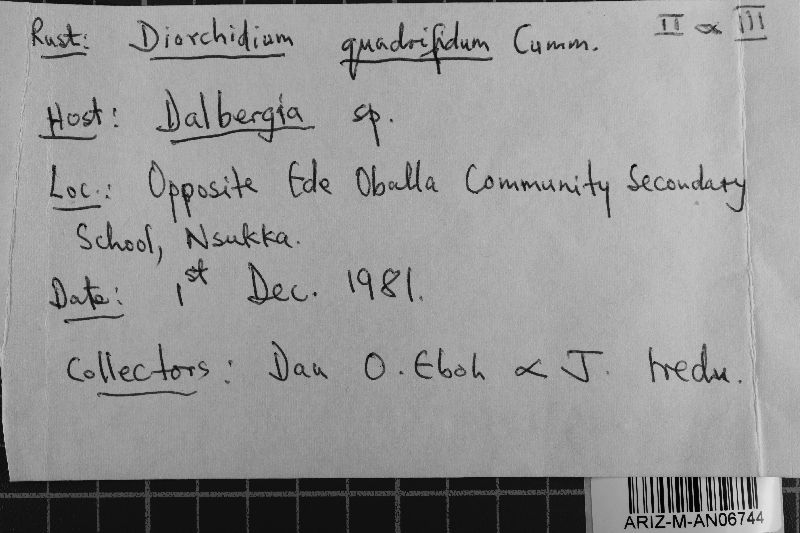 Rust: Diorchidium quadrifidum Cumm. II & III
Host: Dalbergia sp.
Loc.: Opposite Ede Oballa Community Secondary
School, Nsukka.
Date: 1st Dec. 1981.
Collectors: Dan O. Eboh & J.
ARIZ-M-AN06744